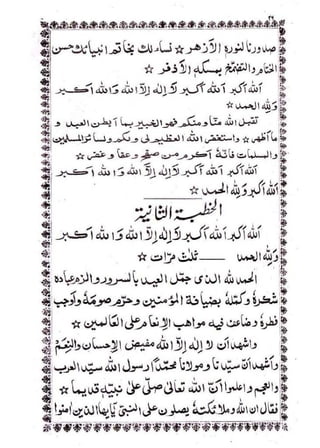 صدورنا لنوره الأزهر ☆ نسألك بخاتم انبيائك حسن
الختام والتضمخ بمسكه الأذفر ☆
الله أكبر الله أكبر لا إله إلا الله والله أكبر
ولله الحمد
تقبل الله منا ومنكم فهو الخبير بما أبطن العبد و
ما أظهر ☆ واستغفر الله العظيم لى ولكم ولسائر المسلمين
والمسلمات فانه أكرم من صفح وعفا وغفر ☆
الله أكبر الله أكبر لا إله إلا الله والله أكبر
الله أكبر ولله الحمد ☆
الخطبة الثانية
الله أكبر الله أكبر لا إله إلا الله والله أكبر
ولله الحمد ثلث مرات ☆
الحمد لله الذى جعل العيد بالسرور والزم عباده
شكره وكمله بضيافة المؤمنين وحرم صومه وأوجب
فطره وضاعف فيه مواهب الإنعام على العالمين ☆
واشهد ان لا إله إلا الله مفيض الإحسان والنعم
وأشهد ان سيدنا ومولانا محمدا رسول الله سيد العرب
والعجم ☆ واعلموا ان الله تعالى صلى على نبيه قديما ☆
فقال ان الله وملائكته يصلون على النبى يايها الذين امنوا